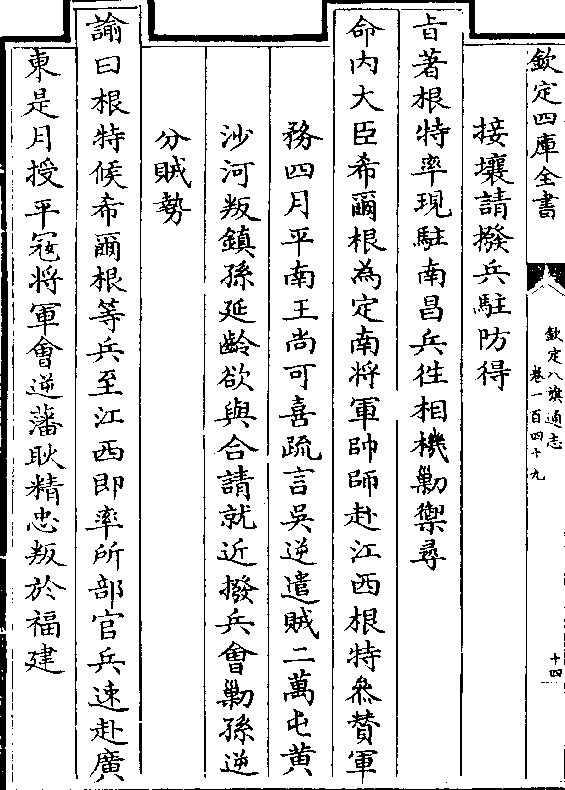 欽定四庫全書
欽定八旗通志
卷一百四十九
十四
接壤請撥兵駐防得
㫖著根特率現駐南昌兵徃相機勦禦尋
命内大臣希爾根為定南將軍帥師赴江西根特叅賛軍
務四月平南王尚可喜疏言吴逆遣賊二萬屯黄
沙河叛鎮孫延齡欲與合請就近撥兵會勦孫逆
分賊勢
諭曰根特候希爾根等兵至江西即率所部官兵速赴廣
東是月授平冦將軍會逆藩耿精忠叛於福建